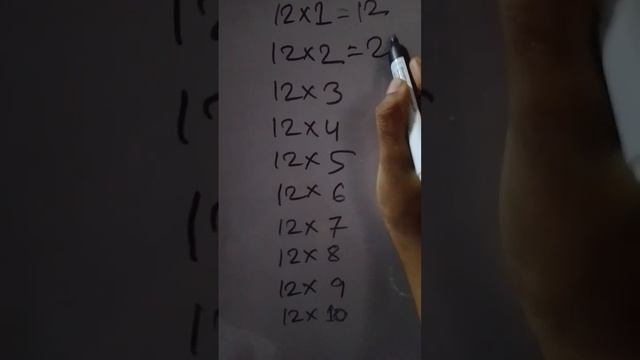 12×1=12
12×2=2
12×3
12×4
12×5
12×6
12×7
12×8
12×9
12×10